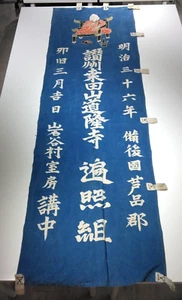 明治三十六年 備後國芦品郡
讃州桑田山道隆寺 遍照組
卯旧三月吉日 岩谷村室房 講中